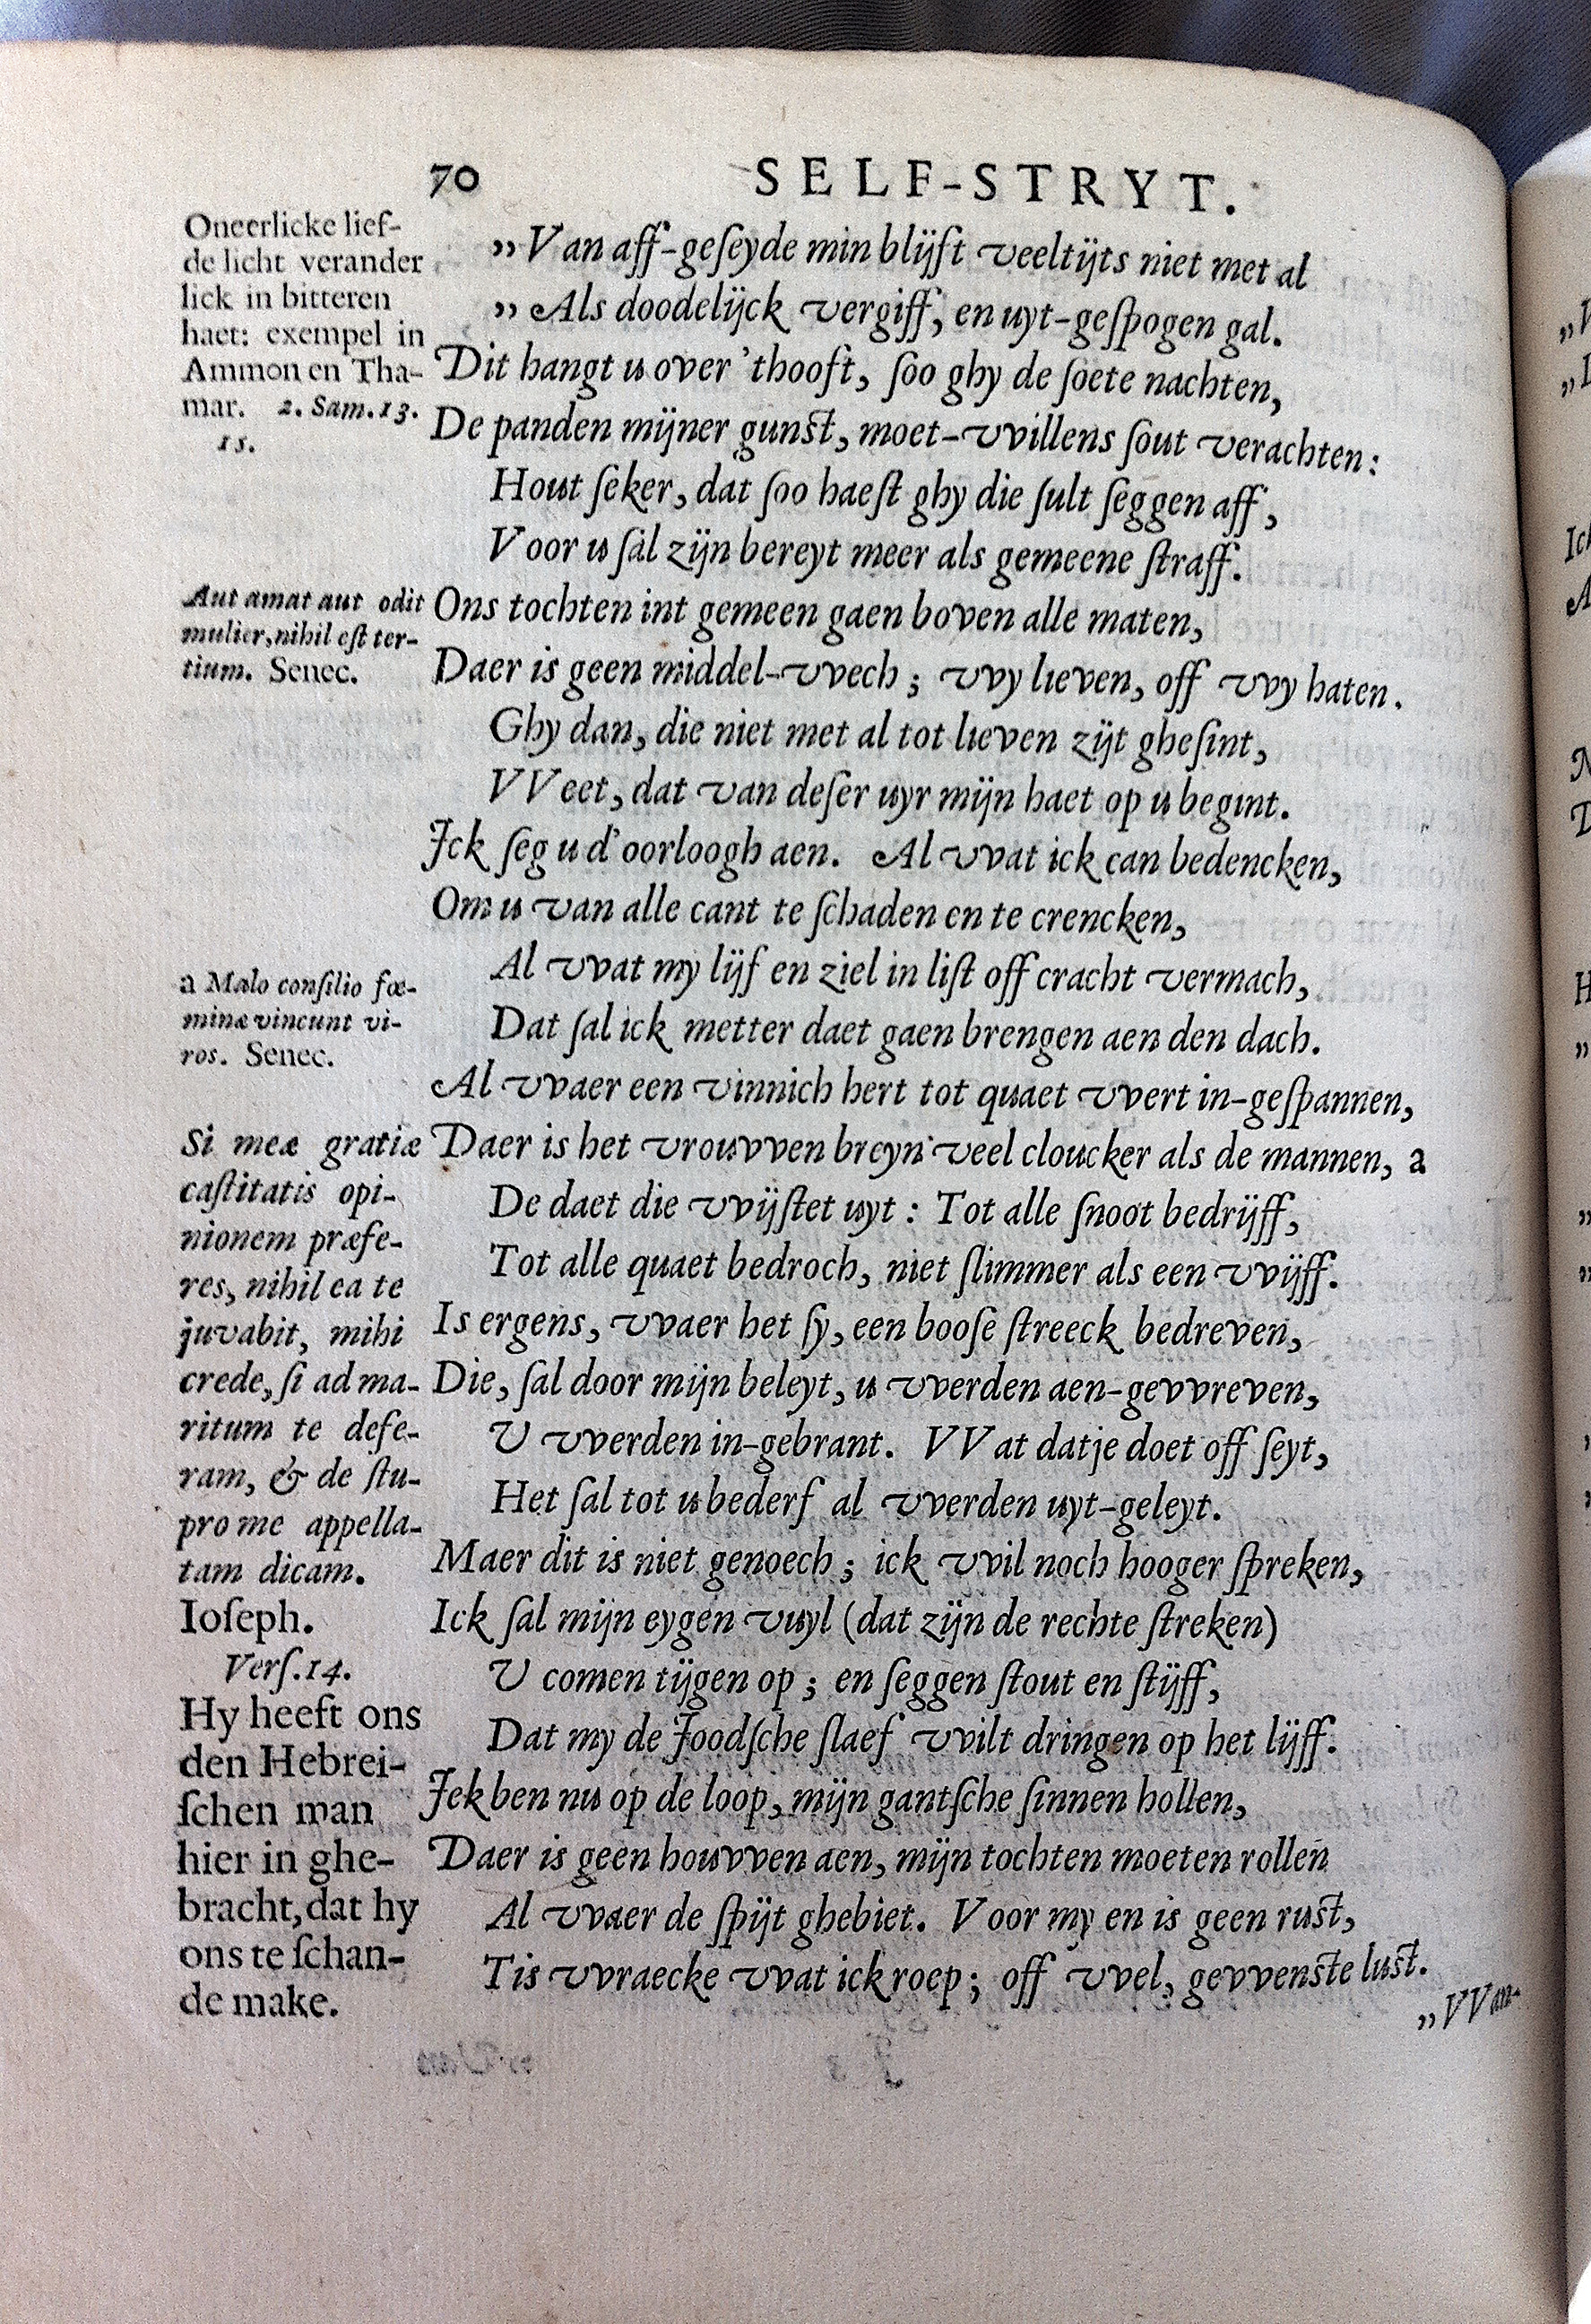 70 SELF-STRYT.
Oneerlicke lief-
de licht verander
lick in bitteren
haet: exempel in
Ammon en Tha-
mar. 2. Sam. 13.
15.
Aut amat aut odit
mulier, nihil eſt ter-
tium. Senec.
a Malo conſilio fœ-
minæ vincunt vi-
ros. Senec.
Si meæ gratiæ
caſtitatis opi-
nionem præfe-
res, nihil ea te
juvabit, mihi
crede, ſi ad ma-
ritum te defe-
ram, & de ſtu-
pro me appella-
tam dicam.
Ioſeph.
Verſ. 14.
Hy heeft ons
den Hebrei-
ſchen man
hier in ghe-
bracht, dat hy
ons te ſchan-
de make.
„Van aff-geſeyde min blijft veeltijts niet met al
„Als doodelijck vergiff, en uyt-geſpogen gal.
Dit hangt u over 'thooft, ſoo ghy de ſoete nachten,
De panden mijner gunſt, moet-vvillens ſout verachten:
Hout ſeker, dat ſoo haeſt ghy die ſult ſeggen aff,
Voor u ſal zijn bereyt meer als gemeene ſtraff.
Ons tochten int gemeen gaen boven alle maten,
Daer is geen middel-vvech; vvy lieven, off vvy haten.
Ghy dan, die niet met al tot lieven zijt gheſint,
VVeet, dat van deſer uyr mijn haet op u begint.
Ick ſeg u d'oorloogh aen. Al vvat ick can bedencken,
Om u van alle cant te ſchaden en te crencken,
Al vvat my lijf en ziel in liſt off cracht vermach,
Dat ſal ick metter daet gaen brengen aen den dach.
Al vvaer een vinnich hert tot quaet vvert in-geſpannen,
Daer is het vrouvven breyn veel cloucker als de mannen, a
De daet die vvijſtet uyt: Tot alle ſnoot bedrijff,
Tot alle quaet bedroch, niet ſlimmer als een vvijff.
Is ergens, vvaer het ſy, een booſe ſtreeck bedreven,
Die, ſal door mijn beleyt, u vverden aen-gevvreven,
U vverden in-gebrant. VVat datje doet off ſeyt,
Het ſal tot u bederf al vverden uyt-geleyt.
Maer dit is niet genoech; ick vvil noch hooger ſpreken,
Ick ſal mijn eygen vuyl (dat zijn de rechte ſtreken)
U comen tijgen op; en ſeggen ſtout en ſtijff,
Dat my de Joodſche ſlaef vvilt dringen op het lijff.
Jck ben nu op de loop, mijn gantſche ſinnen hollen,
Daer is geen houvven aen, mijn tochten moeten rollen
Al vvaer de ſpijt ghebiet. Voor my en is geen ruſt,
Tis vvraecke vvat ick roep; off vvel, gevvenſte luſt.
„VVan-